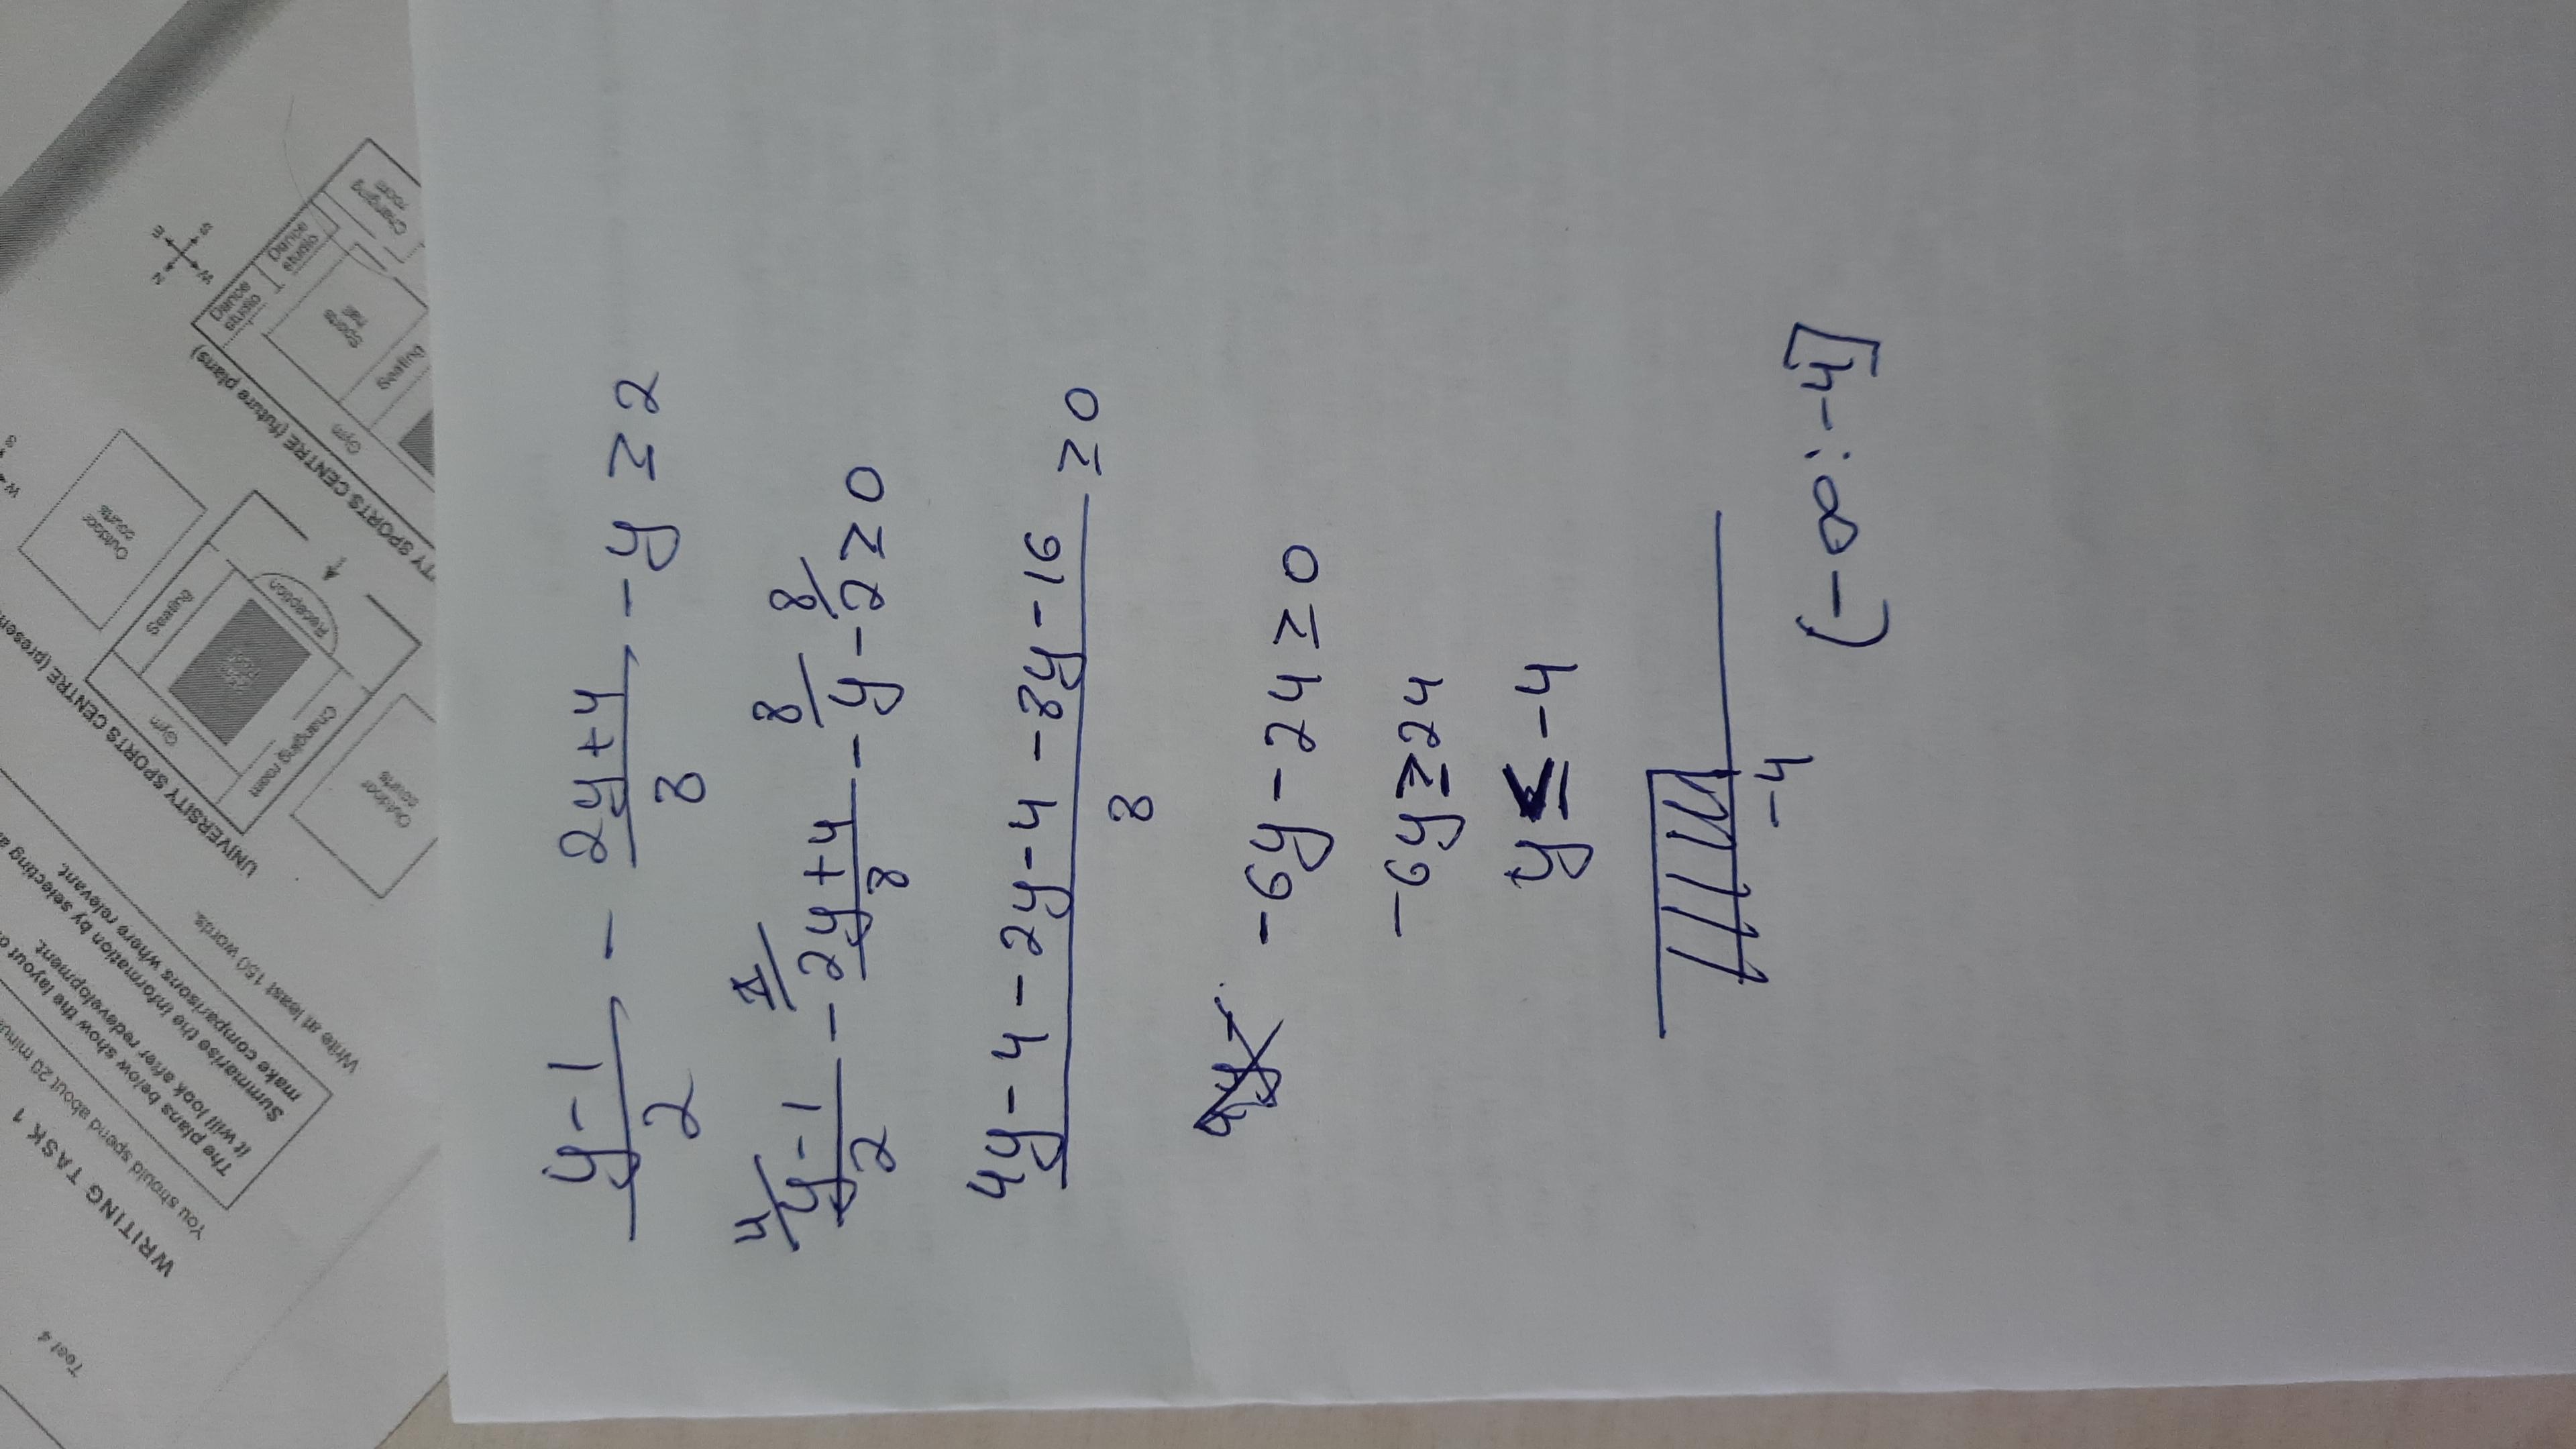 Test 4
WRITING TASK 1
You should spend about 20
The plans below show the layout
it will look after redevelopment.
Summarise the information by selecting
make comparisons where relevant.
Write at least 150 words.
UNIVERSITY SPORTS CENTRE
Outdoor courts
Gym
Changing room
Seating
Reception
Outdoor courts
SPORTS CENTRE (future plans)
Gym
Seating
Sports hall
Dance studio
Dance studio
Changing room
N
E
S
W
(y-1)/2 - (2y+4)/8 - y ≥ 2
4/ (y-1)/2 - 1/ (2y+4)/8 - 8/ y - 8/ 2 ≥ 0
(4y-4-2y-4-8y-16)/8 ≥ 0
-6y-24 ≥ 0
-6y ≥ 24
y ≤ -4
-4
(-∞:-4]